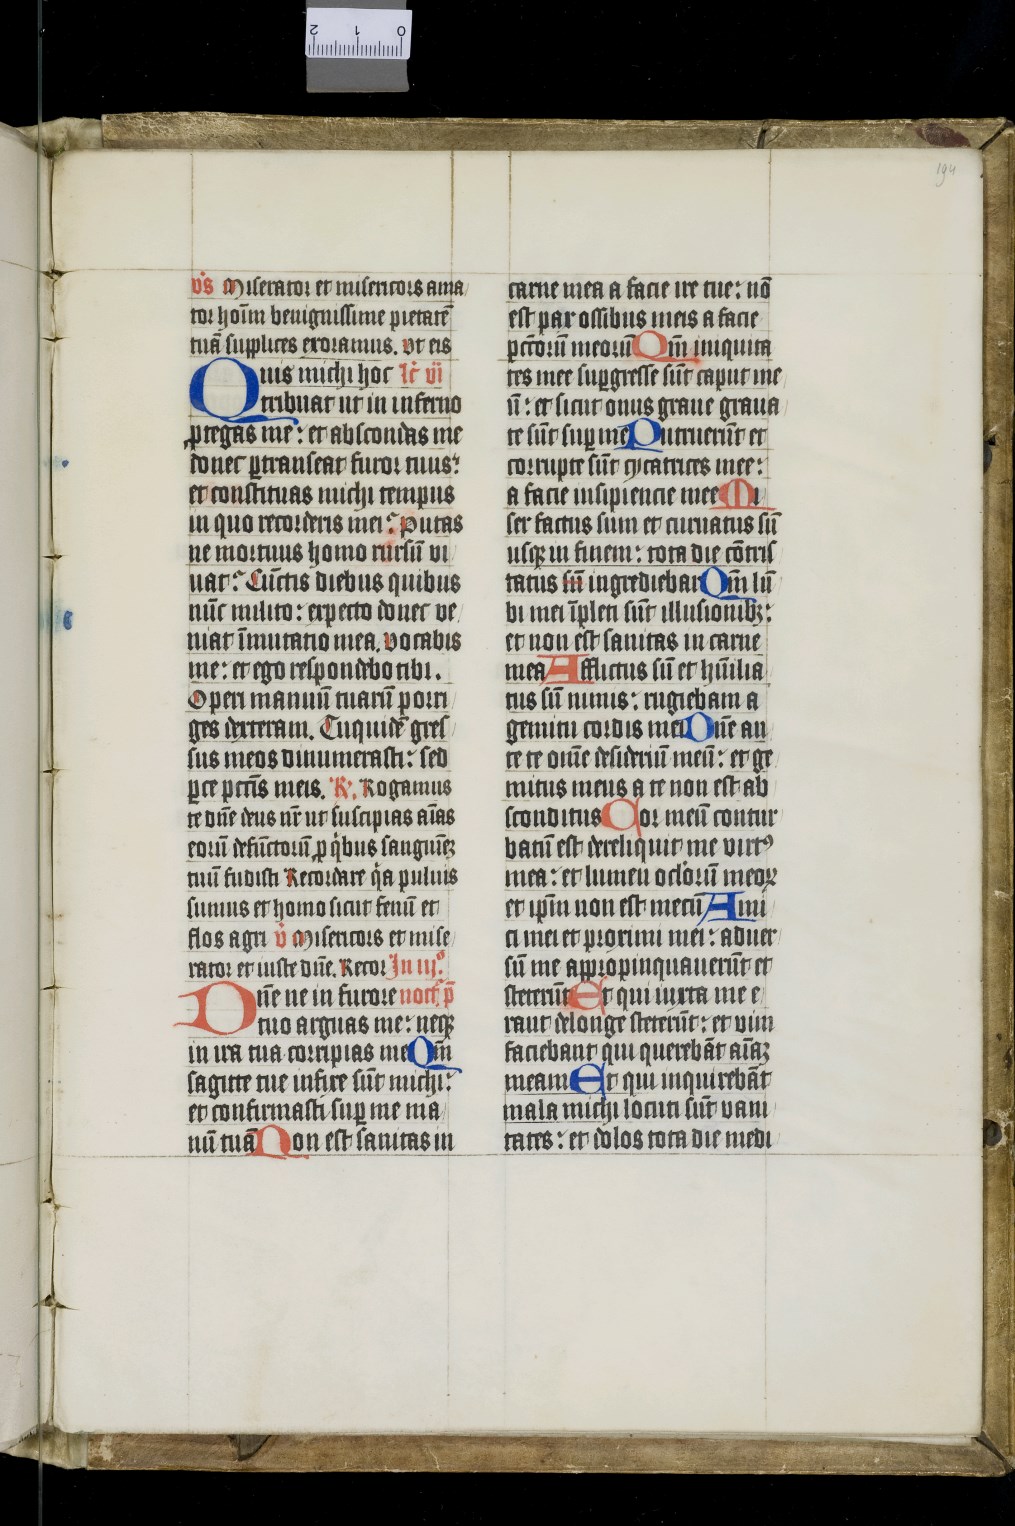 194
v̇s Miserator et misericors ama
tor hoīm benignissime pietatē
tuā supplices exoramus. vt eis
Quis michi hoc lc̄ vii
tribuat ut in inferno
ꝓtegas me: et abscondas me
donec ꝑtranseat furor tuus:
et constituas michi tempus
in quo recorderis mei: Putas
ne mortuus homo rursū vi
uat: Cūctis diebus quibus
nūc milito: expecto donec ve
niat īmutatio mea. vocabis
me: et ego respondebo tibi.
Operi manuū tuarū porri
ges dexteram. Tu quidē gres
sus meos dinumerasti: sed
ꝑce pctīs meis. R̸. Rogamus
te dn̄e deus nr̄ ut suscipias aīas
eorū defūctorū ꝓ qͥbus sanguinē
tuū fudisti Recordare qͥa puluis
sumus et homo sicut fenū et
flos agri v̇ Misericors et mise
rator et iuste dn̄e. Recor In iijͦ
Dn̄e ne in furore noct̄. p̄
tuo arguas me: neqꝫ
in ira tua corripias me Qm̄
sagitte tue infixe sūt michi:
et confirmasti suꝑ me ma
nū tuā Non est sanitas in
carne mea a facie ire tue: nō
est pax ossibus meis a facie
pctōrū meorū Qm̄ iniquita
tes mee supgresse sūt caput me
ū: et sicut onus graue graua
te sūt suꝑ me Putruerūt et
corrupte sūt cycatrices mee:
a facie insipiencie mee Mi
ser factus sum et curuatus sū
usqꝫ in finem: tota die cōtris
tatus ingrediebar Qm̄ lū
bi mei īpleti sūt illusionibꝫ:
et non est sanitas in carne
mea Afflictus sū et hūilia
tus sū nimis: rugiebam a
gemitu cordis mei Dn̄e an
te te omē desideriū meū: et ge
mitus meus a te non est ab
sconditus Cor meū contur
batū est dereliquit me virtꝰ
mea: et lumen oclorū meoꝝ
et ip̄m non est mecū Ami
ci mei et proximi mei: aduer
sū me appropinquauerūt et
steterūt Et qui iuxta me e
rant de longe steterūt: et vim
faciebant qui querebāt aīaꝫ
meam Et qui inquirebāt
mala michi locuti sūt vani
tates: et dolos tota die medi